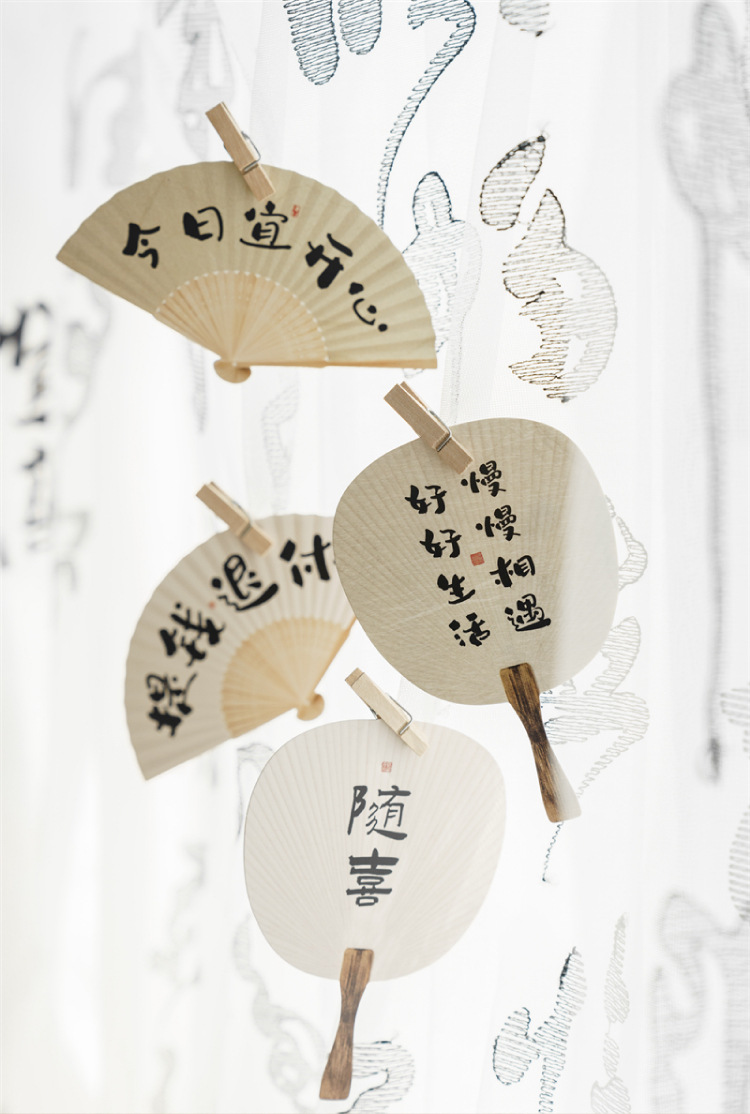 今日宜开心
慢慢相遇
好好生活
提钱退休
随
喜